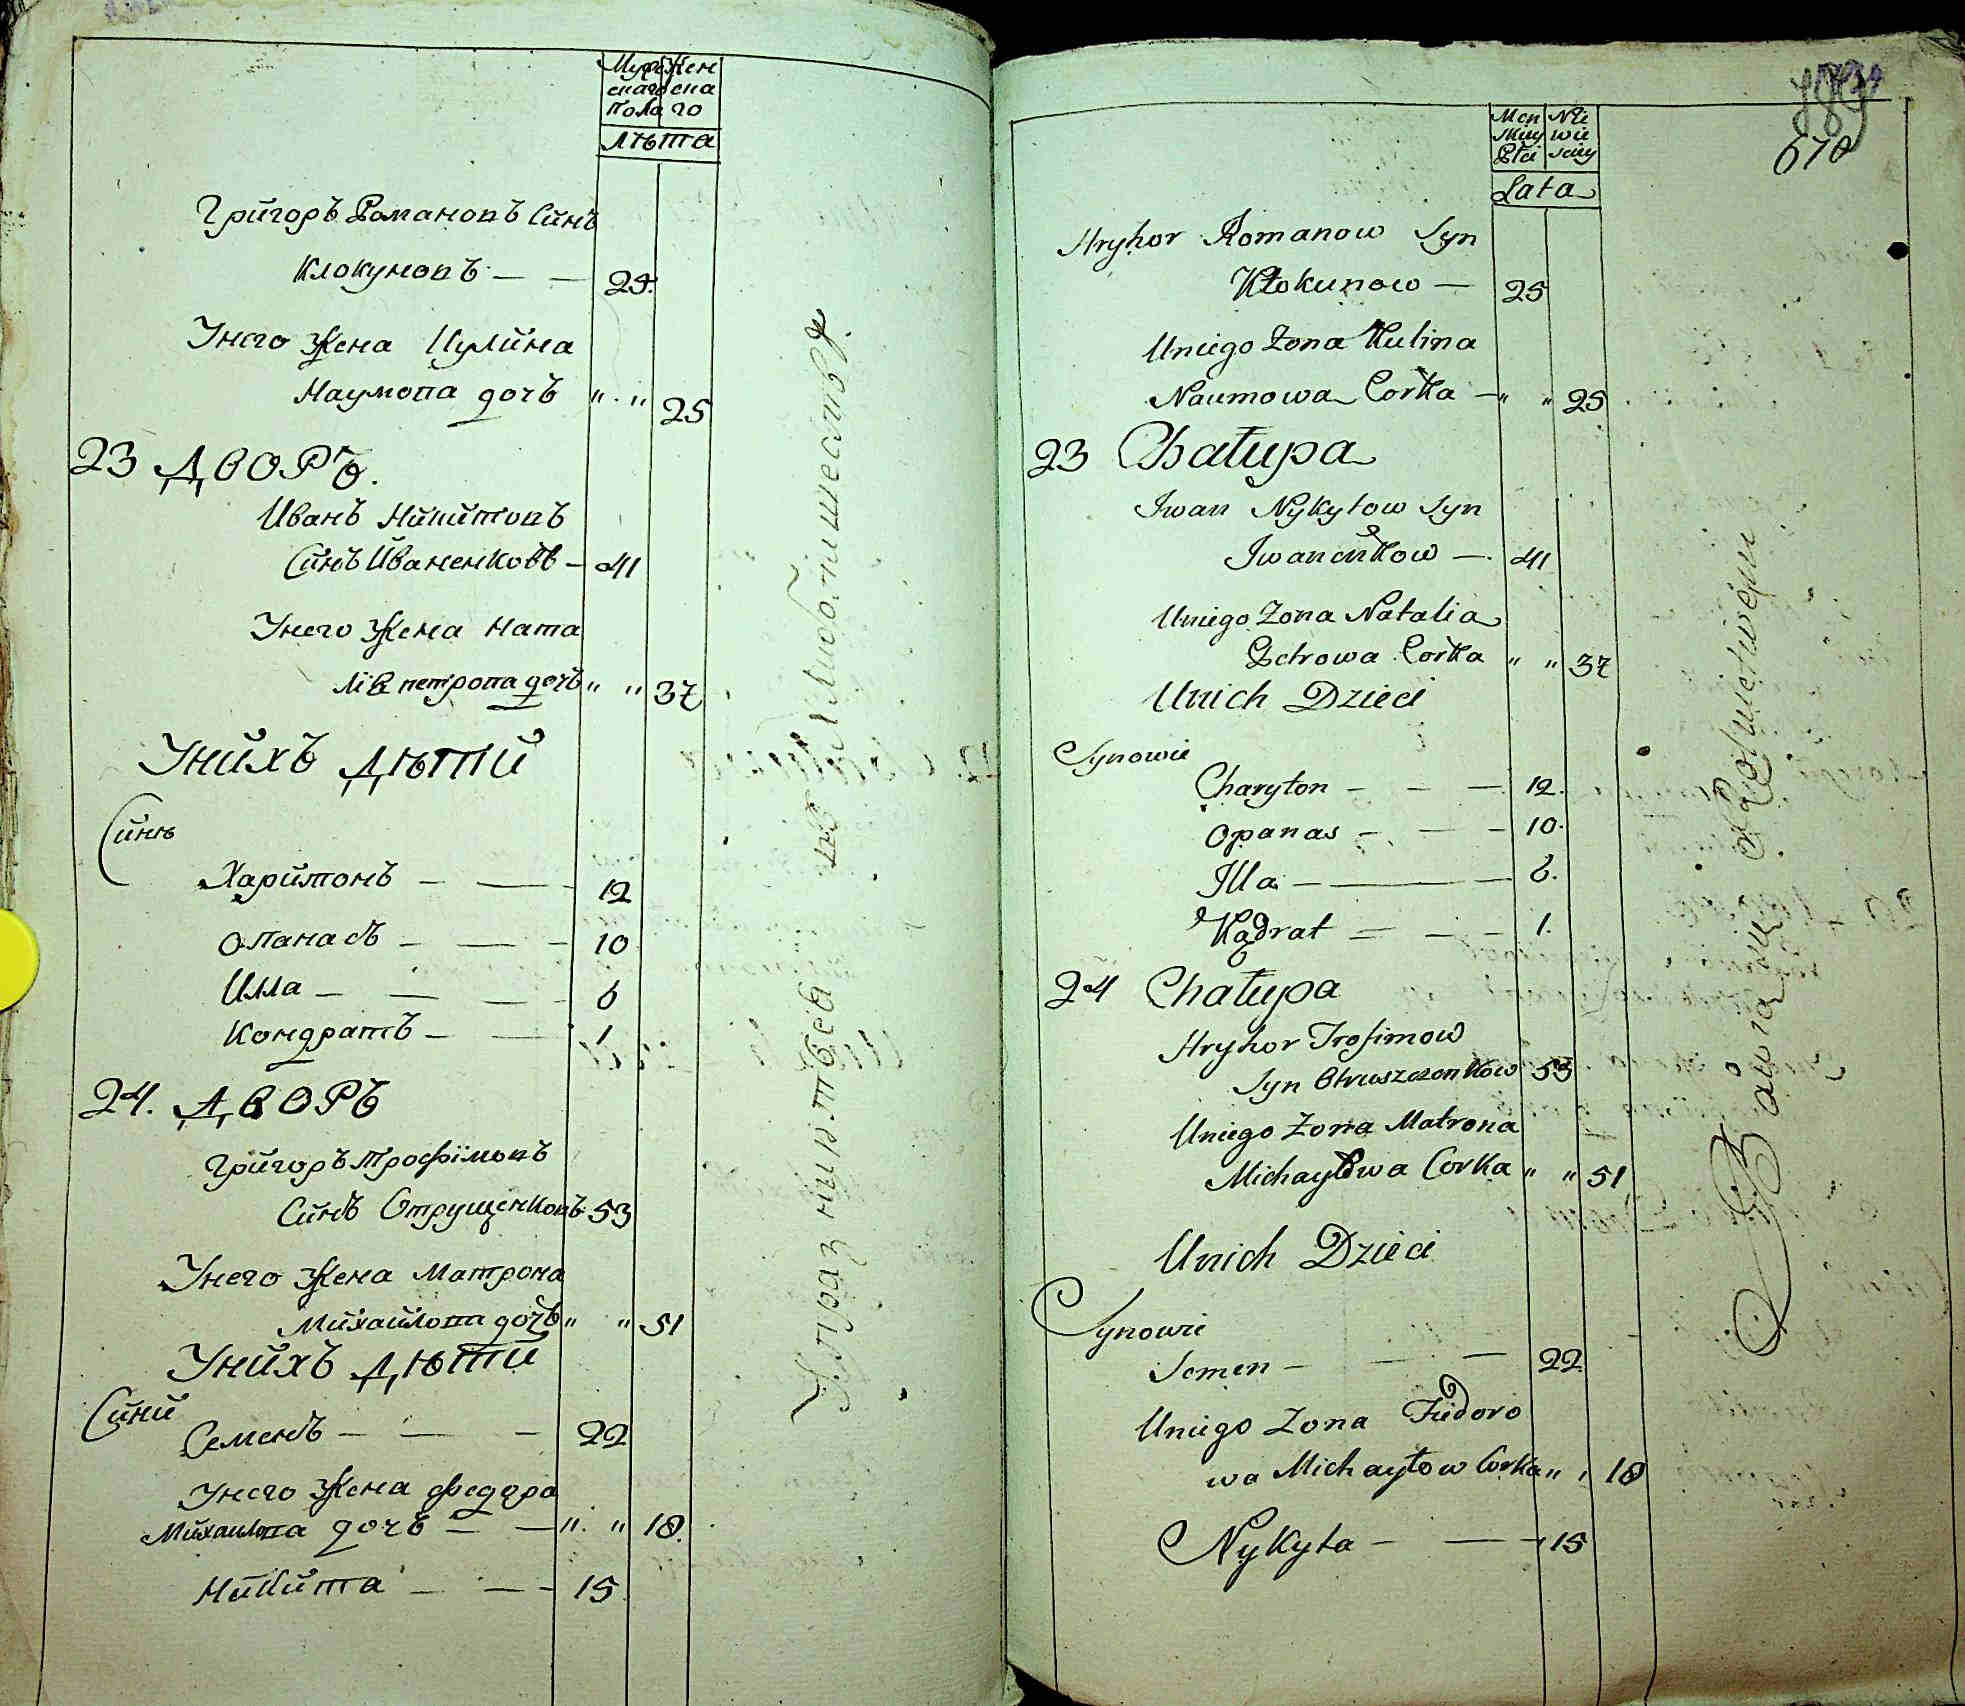 Мужескаго Женска
Пола го
лѣта
Григоръ Романовъ Синъ
Клокуновъ — — 25.
Унего Жена Кулина
Наумова дочъ " " 25
23 Дворъ.
Иванъ Никитовъ
Синъ Иваненковъ — 41
Унего Жена Ната
лія петрова дочъ " " 37
Унихъ Дѣтій
Сини
Харитонъ — — 12
Опанасъ — — — 10
Илла — — — — 6
Кондратъ — — 1
24. Дворъ
Григоръ Трофїмовъ
Синъ Отрущенковъ 53
Унего Жена Матрона
Михайлова дочъ " " 51
Унихъ Дѣти
Сини
Семенъ — — — 22
Унего Жена Федора
Михаилова дочъ — — " " 18.
Никита — — — 15
670
Męn Nie
skiey wie
Płci sciey
Lata
Hryhor Romanow Syn
Kłokunow — 25
Uniego Zona Kulina
Naumowa Corka — " " 25
23 Chałupa
Iwan Nykytow Syn
Iwanenkow — 41
Uniego Zona Natalia
Petrowa Corka " " 37
Unich Dzieci
Synowie
Charyton — — — 12.
Opanas — — — 10.
Illa — — 6.
Kądrat — — — 1.
24 Chałupa
Hryhor Trofimow
Syn Otruszczenkow 53
Uniego Zona Matrona
Michayłowa Corka " " 51
Unich Dzieci
Synowie
Semen — — — 22
Uniego Zona Fiedoro
wa Michayłow Corka " " 18
Nykyta — — 15